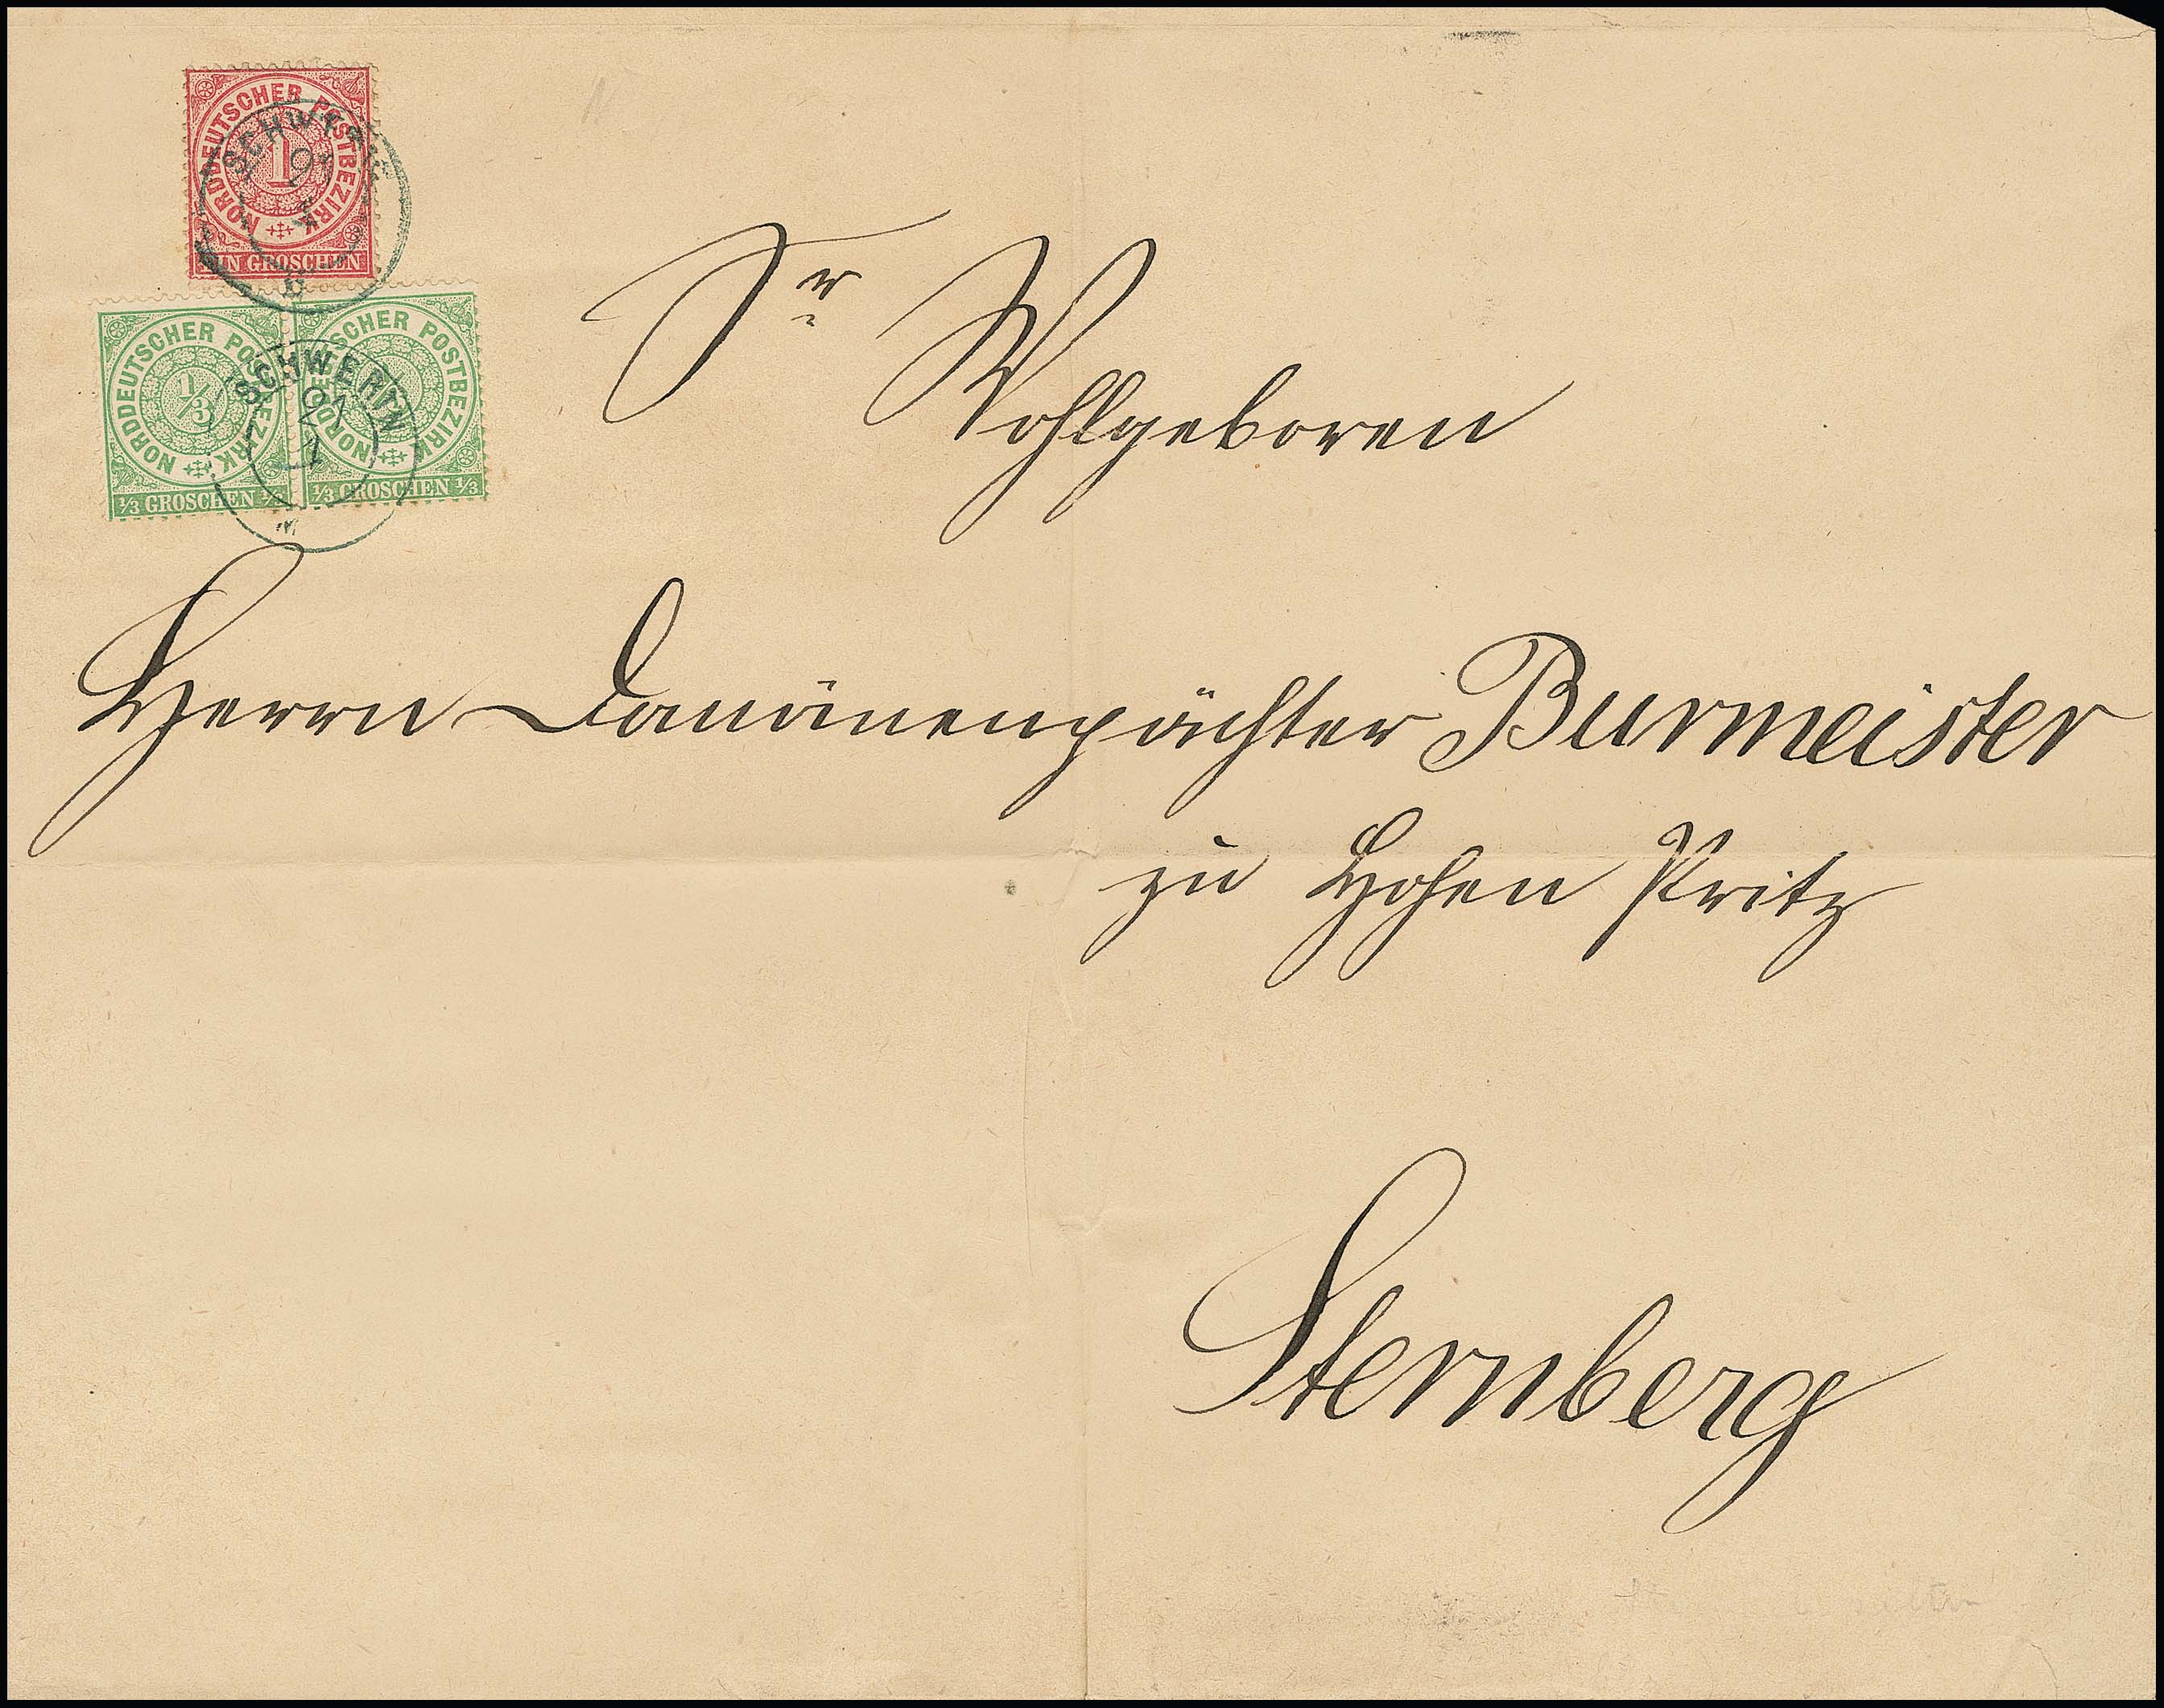 NORDDEUTSCHER POSTBEZIRK
1
EIN GROSCHEN
SCHWERIN
NORDDEUTSCHER POSTBEZIRK
1/3
1/3 GROSCHEN 1/3
NORDDEUTSCHER POSTBEZIRK
1/3 GROSCHEN 1/3
SCHWERIN
21
1
Sr Wohlgeboren
Herrn Domänenpächter Burmeister
zu Hohen Pritz
Sternberg